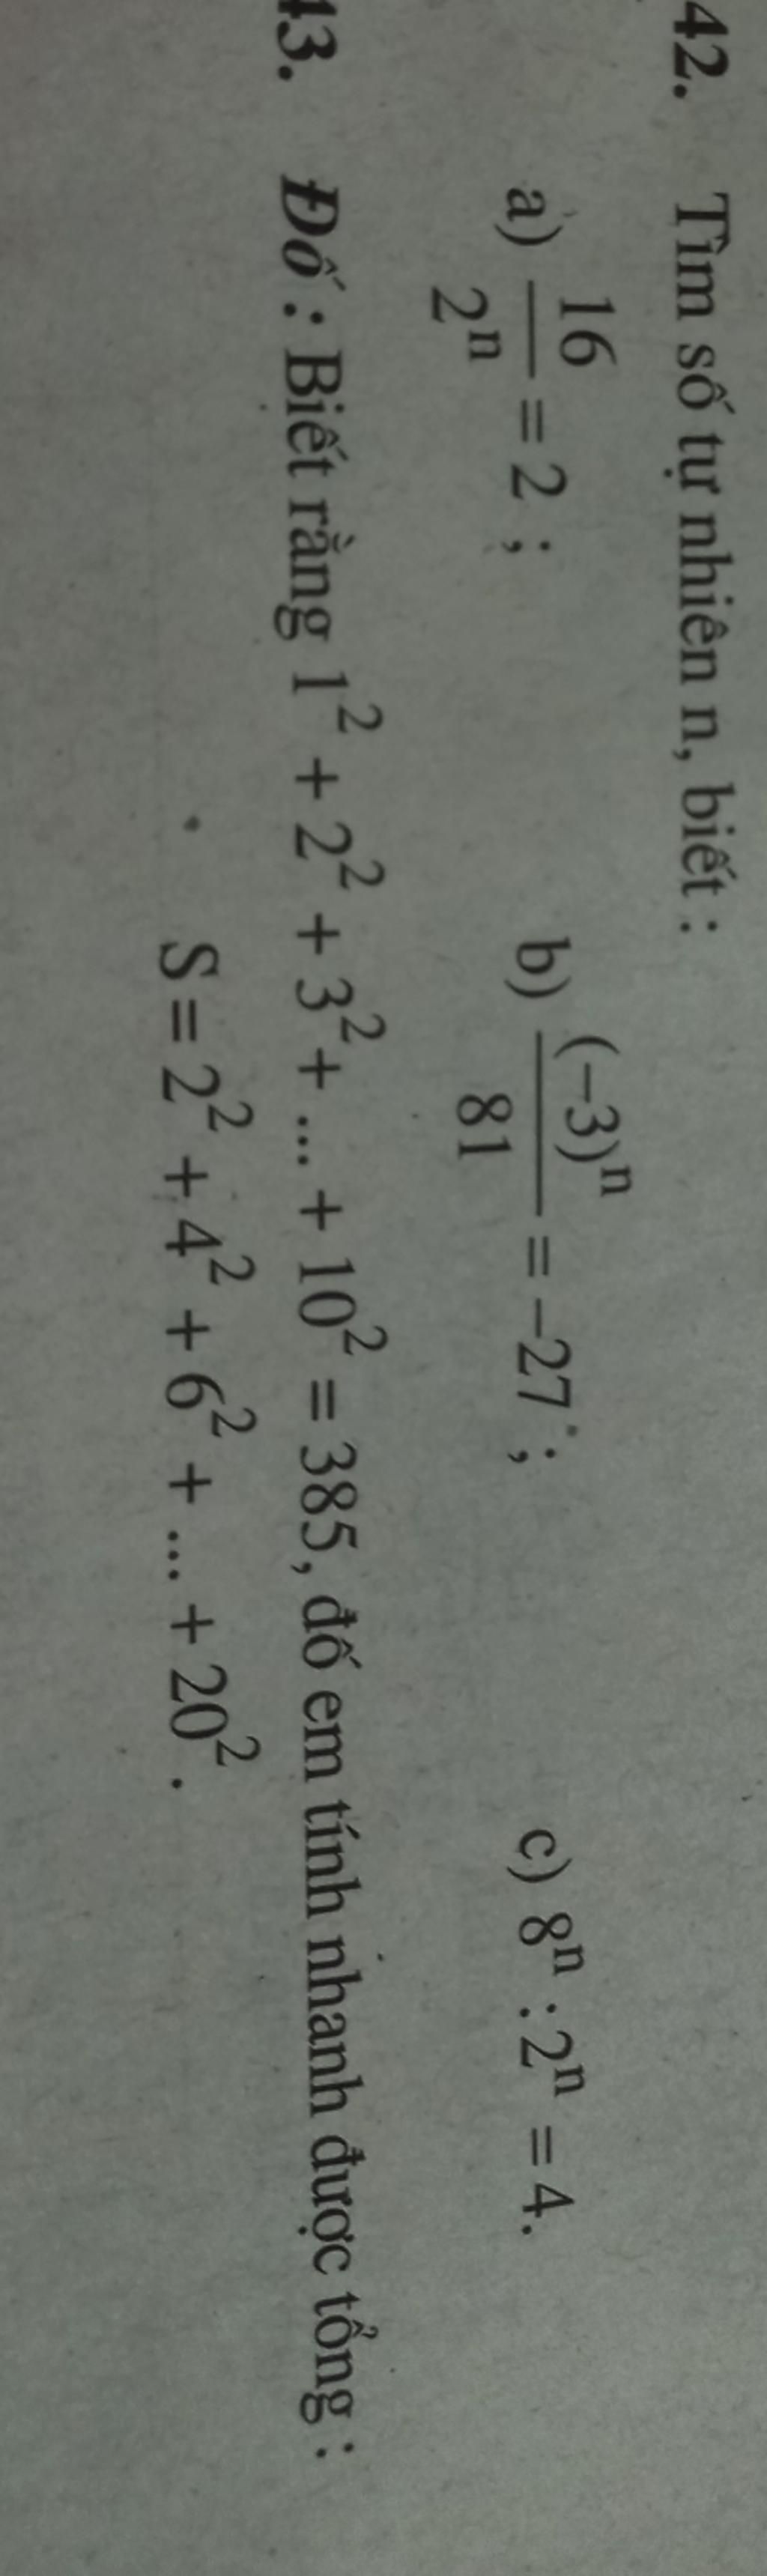 42. Tìm số tự nhiên n, biết :
a) 16/2ⁿ = 2 ; b) (–3)ⁿ/81 = –27 ; c) 8ⁿ : 2ⁿ = 4.
43. Đố : Biết rằng 1² + 2² + 3² + ... + 10² = 385, đố em tính nhanh được tổng :
S = 2² + 4² + 6² + ... + 20².